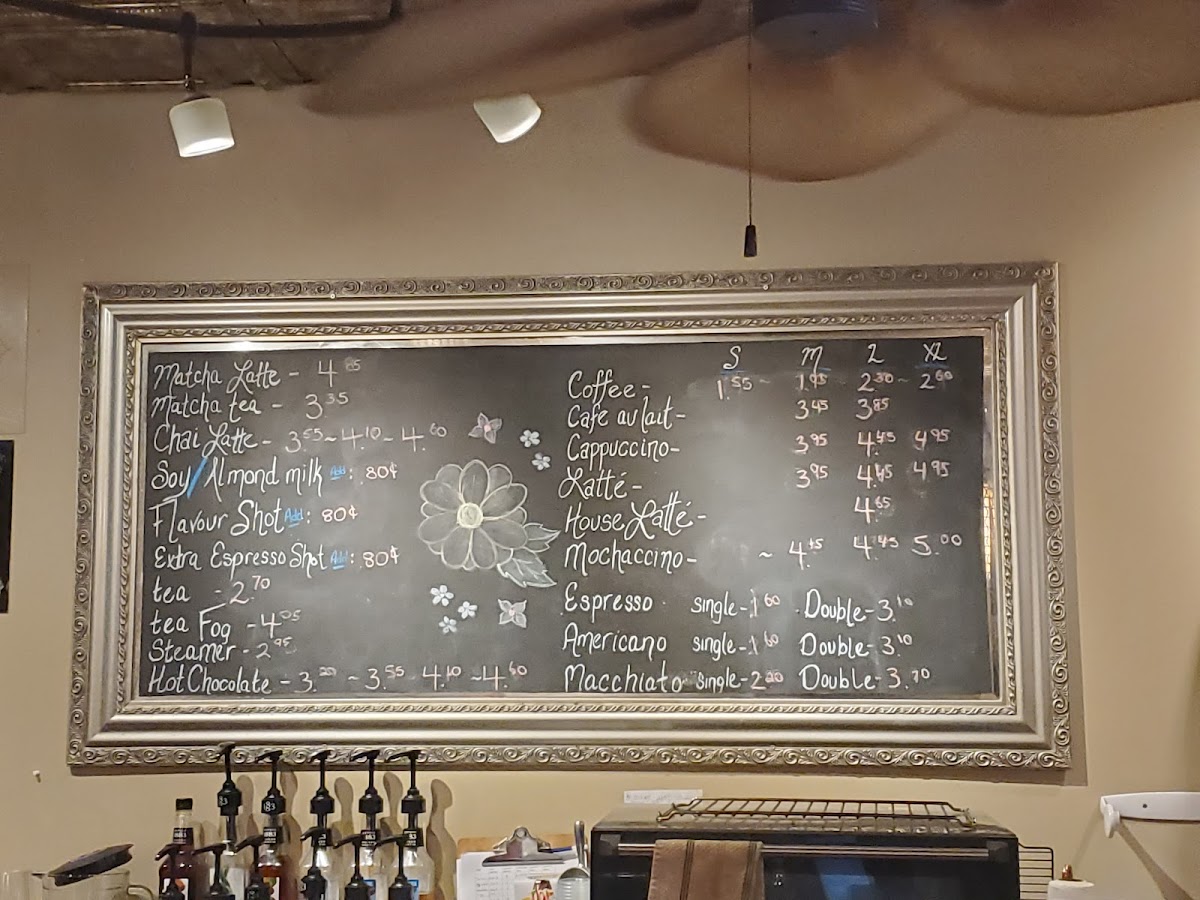 Matcha Latte - 4
Matcha tea - 3.35
Chai Latte - 3.55 ~ 4.10 ~ 4.60
Soy/Almond milk Add: 80¢
Flavour Shot Add: 80¢
Extra Espresso Shot Add: 80¢
tea - 2.70
tea Fog - 4.05
Steamer - 2.95
Hot Chocolate - 3.20 ~ 3.55 4.10 ~ 4.60
S M L XL
Coffee - 1.55 ~ 1.95 2.30 ~ 2.60
Cafe au lait - 3.45 3.85
Cappuccino - 3.95 4.45 4.95
Latté - 3.95 4.45 4.95
House Latté - 4.65
Mochaccino - ~ 4.45 4.95 5.00
Espresso single - 1.60 Double - 3.10
Americano single - 1.60 Double - 3.10
Macchiato single - 2.20 Double - 3.70